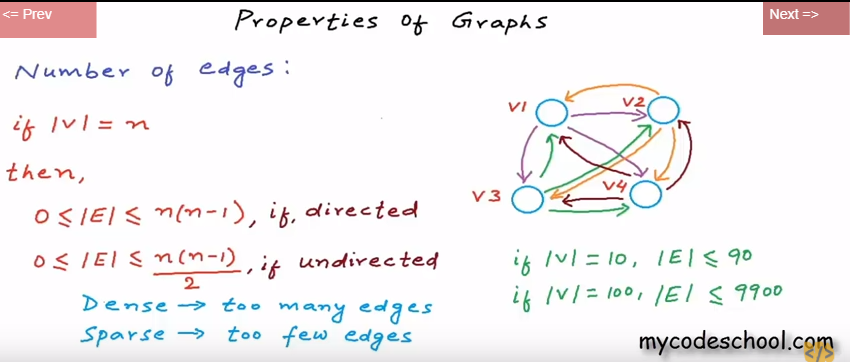 <= Prev
Properties of Graphs
Next =>
Number of edges:
if |V| = n
then,
0 ≤ |E| ≤ n(n-1), if, directed
0 ≤ |E| ≤ n(n-1)/2, if undirected
Dense → too many edges
Sparse → too few edges
V1
V2
V3
V4
if |V| = 10, |E| ≤ 90
if |V| = 100, |E| ≤ 9900
mycodeschool.com
</>